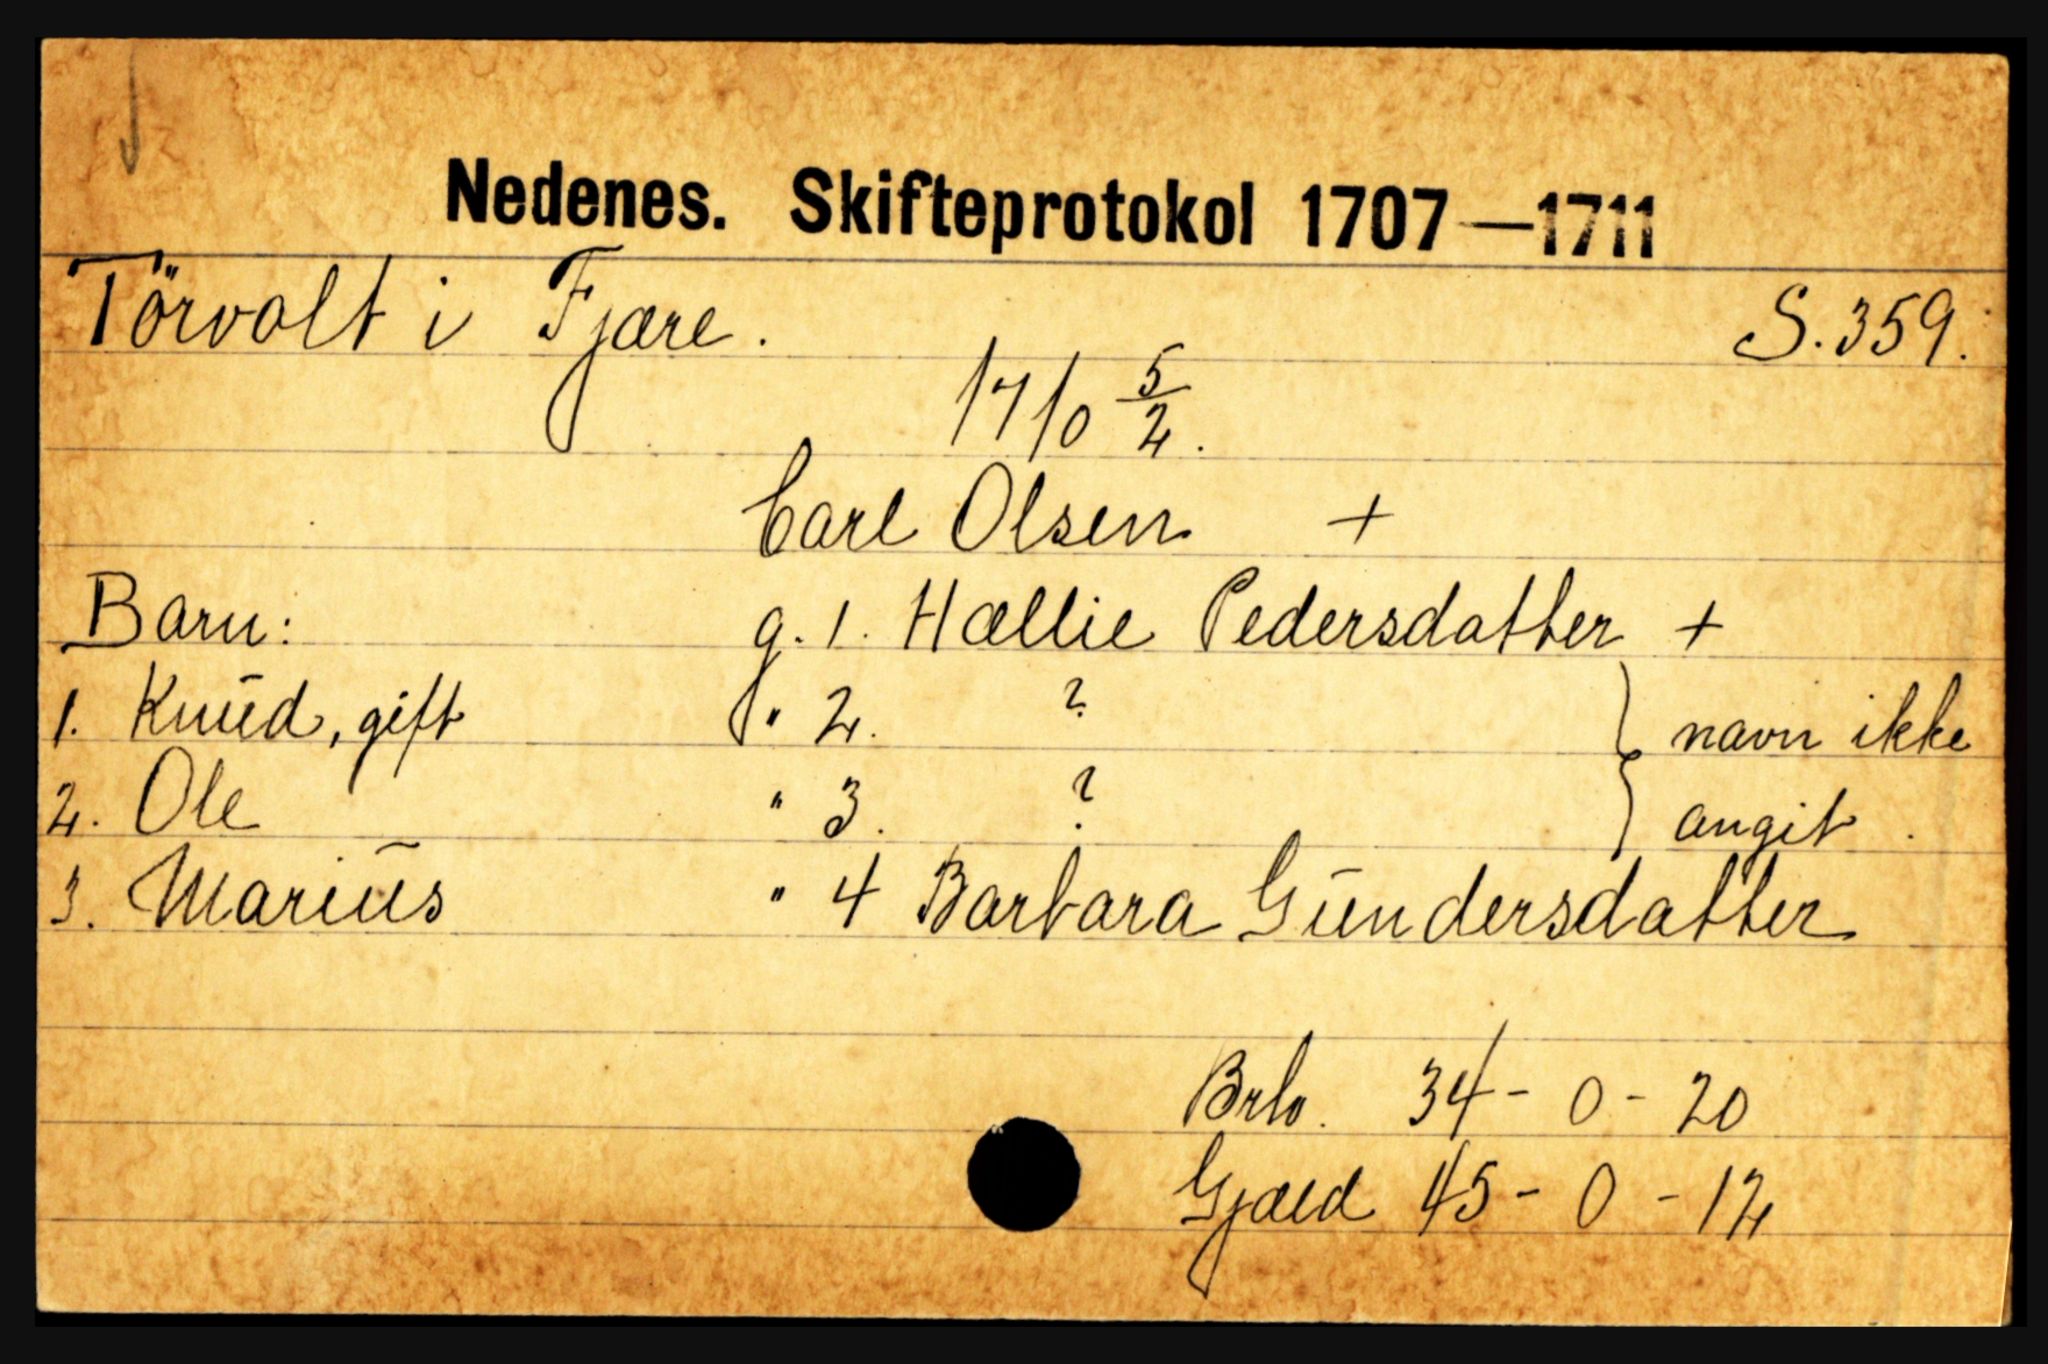 Nedenes. Skifteprotokol 1707—1711
Törvolt i Fjære. S. 359.
1710 5/2.
Carl Olsen +
Barn: g. 1. Hællie Pedersdatter +
1. Knud, gift " 2. ? } navn ikke
2. Ole " 3. ? } angit.
3. Marius " 4 Barbara Gundersdatter
Brto. 34 - 0 - 20
Gjæld 45 - 0 - 12